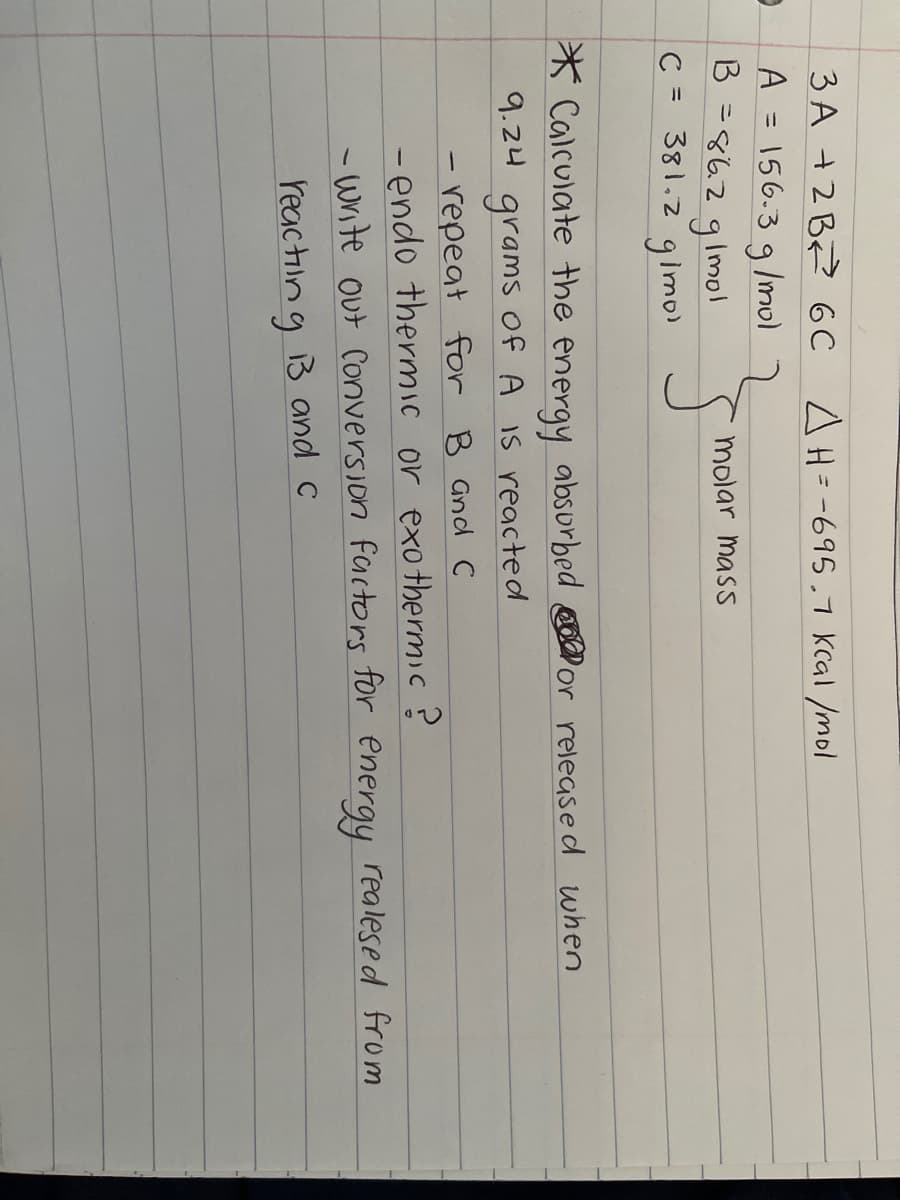 3A + 2B ⇄ 6C ΔH = -695.7 kcal/mol
A = 156.3 g/mol
B = 86.2 g/mol
C = 381.2 g/mol
} molar mass
* Calculate the energy absorbed or released when
9.24 grams of A is reacted
- repeat for B and C
- endo thermic or exothermic?
- write out Conversion factors for energy realesed from
reacting B and C